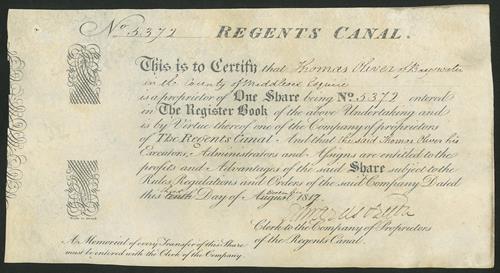 No. 5372 REGENTS CANAL.
This is to Certify that Thomas Oliver of Bayswater
in the County of Middlesex Esquire
is a proprietor of One Share being No. 5372 entered
in The Register Book of the above Undertaking and
is by Virtue thereof one of the Company of proprietors
of The Regents Canal. And that the said Thomas Oliver his
Executors, Administrators and Assigns are entitled to the
profits and Advantages of the said Share subject to the
Rules, Regulations and Orders of the said Company Dated
this tenth Day of August 1817
Clerk to the Company of Proprietors
of the Regents Canal.
A Memorial of every Transfer of this Share
must be entered with the Clerk of the Company.